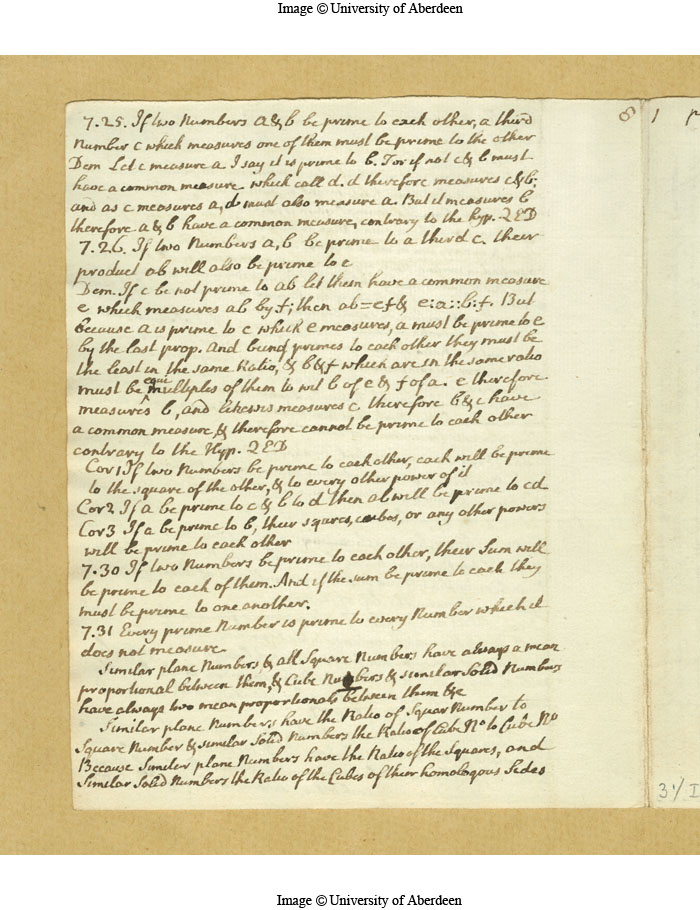 Image © University of Aberdeen
7.25. If two Numbers a & b be prime to each other, a third
Number c which measures one of them must be prime to the other
Dem Let c measure a I say it is prime to b. For if not c & b must
have a common measure which call d. d therefore measures c & b;
and as c measures a, d must also measure a. But d measures b
therefore a & b have a common measure, contrary to the hyp. QED
7.26. If two Numbers a, b be prime to a third c. their
product ab will also be prime to c
Dem. If c be not prime to ab let them have a common measure
e which measures ab by f; then ab=ef & e:a::b:f. But
because a is prime to c which e measures, a must be prime to e
by the last prop. And being primes to each other they must be
the least in the same Ratio, & b & f which are in the same ratio
must be equi multiples of them to wit b of e & f of a. e therefore
measures b, and likewise measures c therefore b & c have
a common measure & therefore cannot be prime to each other
contrary to the Hyp. QED
Cor 1 If two Numbers be prime to each other, each will be prime
to the square of the other, & to every other power of it
Cor 2 If a be prime to c & b to d then ab will be prime to cd
Cor 3 If a be prime to b, their squres, cubes, or any other powers
will be prime to each other
7.30 If two Numbers be prime to each other, their Sum will
be prime to each of them. And if the sum be prime to each they
must be prime to one another.
7.31 Every prime Number is prime to every Number which it
does not measure
Similar plane Numbers & all Square Numbers have always a mean
proportional between them, & Cube Numbers & similar Solid Numbers
have always two mean proportionals between them &c
Similar plane Numbers have the Ratio of Squar Number to
Square Number & similar Solid Numbers the Ratio of Cube No to Cube No
Because Similar plane Numbers have the Ratio of the Squares, and
Similar Solid Numbers the Ratio of the Cubes of their homologous Sides
8
1
31/ I
Image © University of Aberdeen